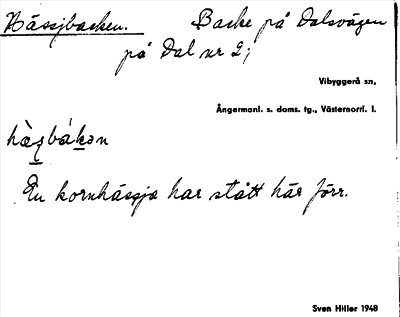 Hässjbacken. Backe på Dalsvägen
på Dal nr 2;
Vibyggerå sn,
Ångermanl. s. doms. tg., Västernorrl. l.
hàs̠bák̠ən
En kornhässja har stått här förr.
Sven Hiller 1948